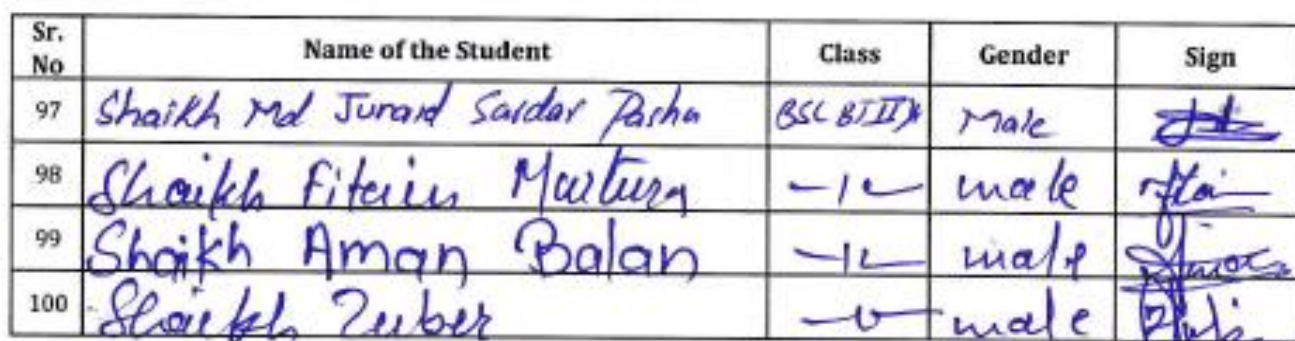 Sr. No Name of the Student Class Gender Sign
97 Shaikh Md Junaid Sardar Pasha BSC BI II Male
98 Shaikh male
99 Shaikh Aman Balan male
100 Shaikh Zuber male